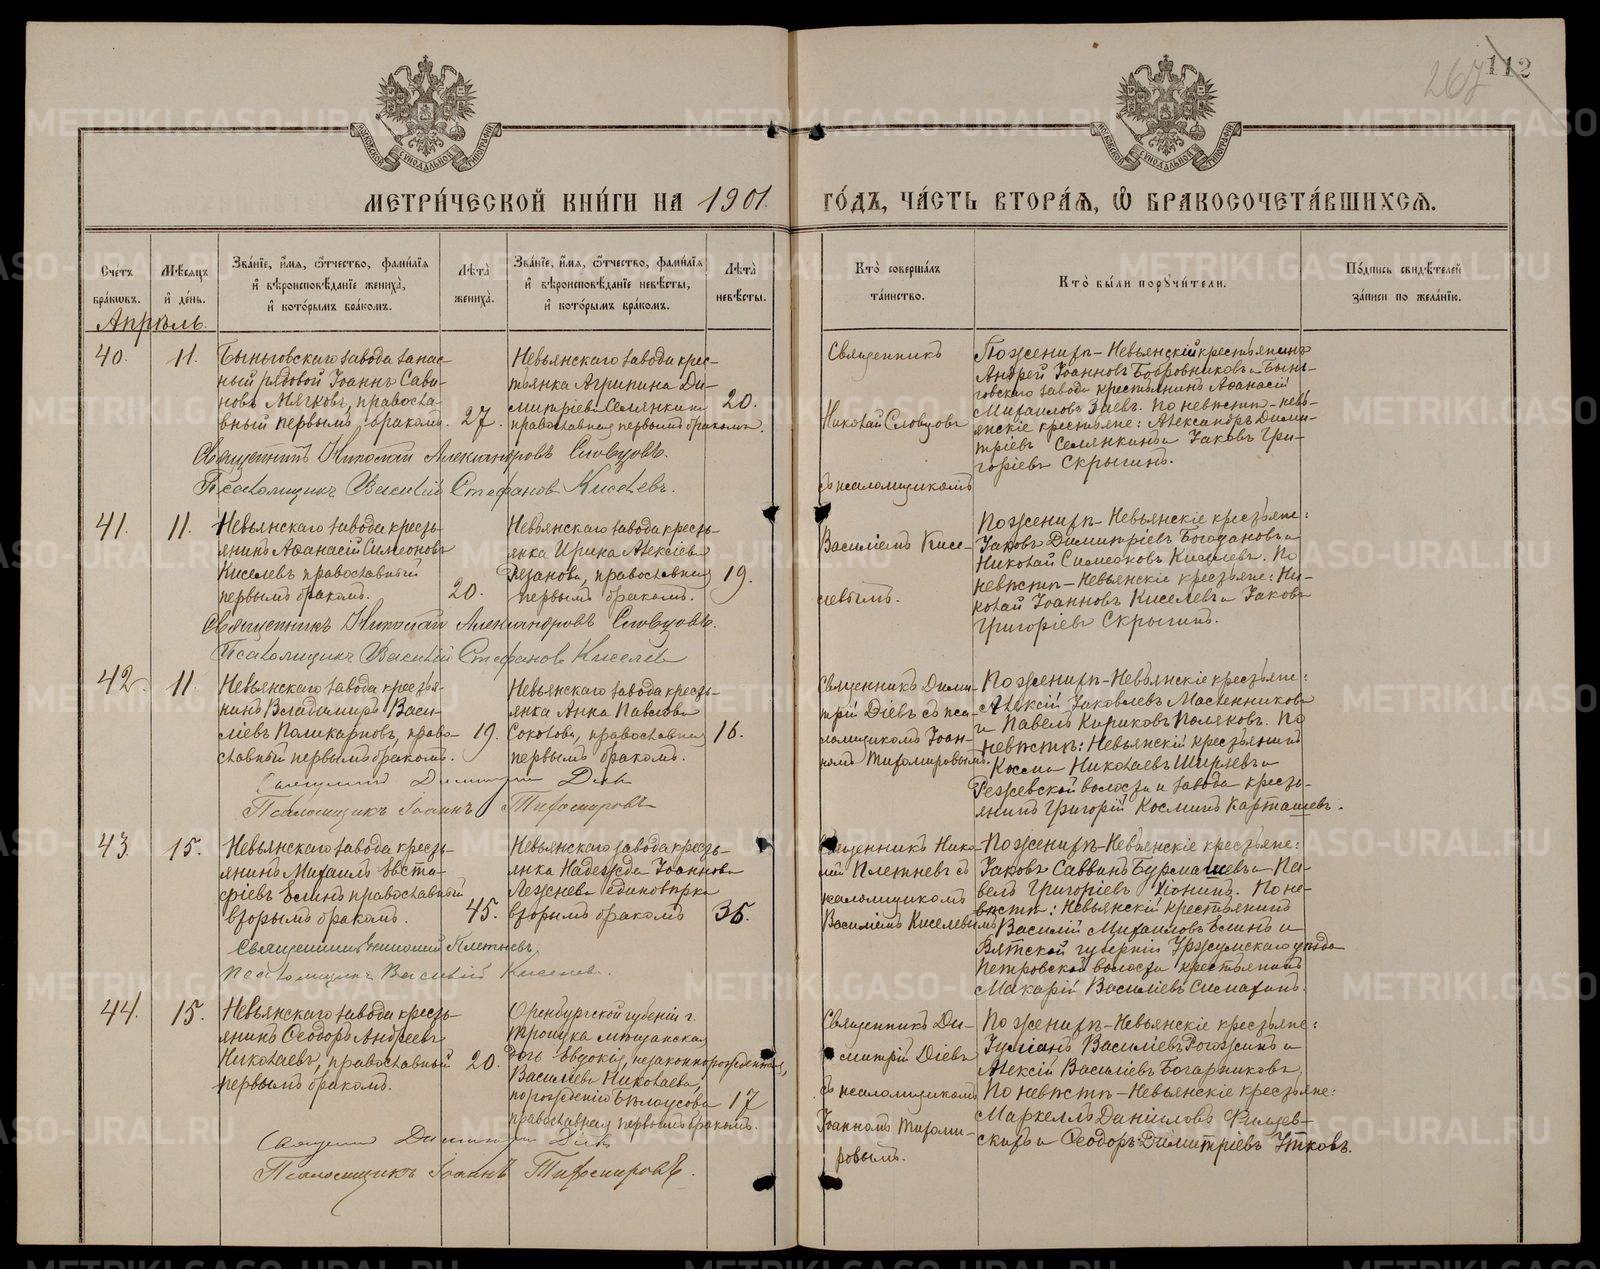 267
112
МОСКОВСКОЙ СУНОДАЛЬНОЙ ТИПОГРАФІИ
МОСКОВСКОЙ СУНОДАЛЬНОЙ ТИПОГРАФІИ
МЕТРИ́ЧЕСКОЙ КНИ́ГИ НА 1901. ГО́ДЪ, ЧА́СТЬ ВТОРА́Ѧ, Ѽ БРАКОСОЧЕТА́ВШИХСѦ.
Сче́тъ бра́кѡвъ.
Мѣ́сѧцъ и҆ де́нь.
Зва́нїе, и҆́мѧ, ѻ҆́тчество, фами́лїѧ и҆ вѣроисповѣ́данїе жениха̀, и҆ кото́рымъ бра́комъ.
Лѣ́та̀ жениха̀.
Зва́нїе, и҆́мѧ, ѻ҆́тчество, фами́лїѧ и҆ вѣроисповѣ́данїе невѣ́сты, и҆ кото́рымъ бра́комъ.
Лѣ́та̀ невѣ́сты.
Кто̀ соверша́лъ та́инство.
Кто̀ бы́ли порꙋчи́тели.
По́дпись свидѣ́телей за́писи по жела́нїю.
Апрѣль.
40.
11.
Быньговскаго завода запас-
ный рядовой Іоаннъ Сава-
новъ Мягковъ, правосла-
вный первымъ бракомъ.
27.
Невьянскаго завода крес-
тьянка Агрипина Ди-
митріева Селянкина
православная первымъ бракомъ.
20.
Священникъ
Николай Словцовъ
съ псаломщикомъ
По женихѣ – Невьянскій крестьянинъ
Андрей Іоанновъ Бобровниковъ и Бынь-
говскаго завода крестьянинъ Аѳанасій
Михаиловъ Заевъ. По невѣстѣ – невь-
янскіе крестьяне: Александръ Дими-
тріевъ Селянкинъ и Іаковъ Гри-
горіевъ Скрыгинъ.
Священникъ Николай Александровъ Словцовъ.
Псаломщикъ Василій Стефановъ Киселевъ.
41.
11.
Невьянскаго завода кресть-
янинъ Аѳанасій Симеоновъ
Киселевъ православный
первымъ бракомъ.
20.
Невьянскаго завода кресть-
янка Ирина Алексіева
Рязанова, православная
первымъ бракомъ.
19.
Василіемъ Кисе-
левымъ.
По женихѣ – Невьянскіе крестьяне:
Іаковъ Димитріевъ Богдановъ и
Николай Симеоновъ Киселевъ. По
невѣстѣ – Невьянскіе крестьяне: Ни-
колай Іоанновъ Киселевъ и Іаковъ
Григоріевъ Скрыгинъ.
Священникъ Николай Александровъ Словцовъ.
Псаломщикъ Василій Стефановъ Киселевъ
42.
11.
Невьянскаго завода крестья-
нинъ Владимиръ Васи-
ліевъ Поликарповъ, право-
славный первымъ бракомъ.
19.
Невьянскаго завода кресть-
янка Анна Павлова
Соколова, православная
первымъ бракомъ.
16.
Священникъ Дими-
трій Діевъ съ пса-
ломщикомъ Іоан-
номъ Тихомировымъ.
По женихѣ – Невьянскіе крестьяне:
Алексій Іаковлевъ Масленниковъ
и Павелъ Кириковъ Поляковъ. По
невѣстѣ: Невьянскій крестьянинъ
Косма Николаевъ Ширяевъ и
Режевской волости и завода кресть-
янинъ Григорій Косминъ Карташевъ.
Священникъ Димитрій Діевъ
Псаломщикъ Іоаннъ Тихомировъ
43.
15.
Невьянскаго завода кресть-
янинъ Михаилъ Евста-
фіевъ Есинъ православный
вторымъ бракомъ.
45.
Невьянскаго завода кресть-
янка Надежда Іоаннова
Лежнева единовѣрка
вторымъ бракомъ
36.
Священникъ Нико-
лай Плетневъ съ
псаломщикомъ
Василіемъ Киселевымъ
По женихѣ – Невьянскіе крестьяне:
Іаковъ Саввинъ Бурмашевъ и Па-
велъ Григоріевъ Хіонинъ. По не-
вѣстѣ: Невьянскій крестьянинъ
Василій Михаиловъ Есинъ и
Вятской губерніи Уржумскаго уѣзда
Петровской волости крестьянинъ
Макарій Василіевъ
Священникъ Николай Плетневъ.
Псаломщикъ Василій Киселевъ.
44.
15.
Невьянскаго завода кресть-
янинъ Ѳеодоръ Андреевъ
Николаевъ, православный
первымъ бракомъ.
20.
Оренбургской губерніи г.
Троицка мѣщанская
дочь Евдокія, незаконнорожденная,
Василіева Николаева,
по рожденію Бѣлоусова
православная первымъ бракомъ.
17
Священникъ Ди-
митрій Діевъ
съ псаломщикомъ
Іоанномъ Тихоми-
ровымъ.
По женихѣ – Невьянскіе крестьяне:
Іуліанъ Василіевъ Рогожинъ и
Алексій Василіевъ Богарниковъ,
По невѣстѣ – Невьянскіе крестьяне:
Маркеллъ Даніиловъ
Ѳеодоръ Димитріевъ Утковъ.
Священникъ Димитрій Діевъ
Псаломщикъ Іоаннъ Тихомировъ.
METRIKI.GASO-URAL.RU